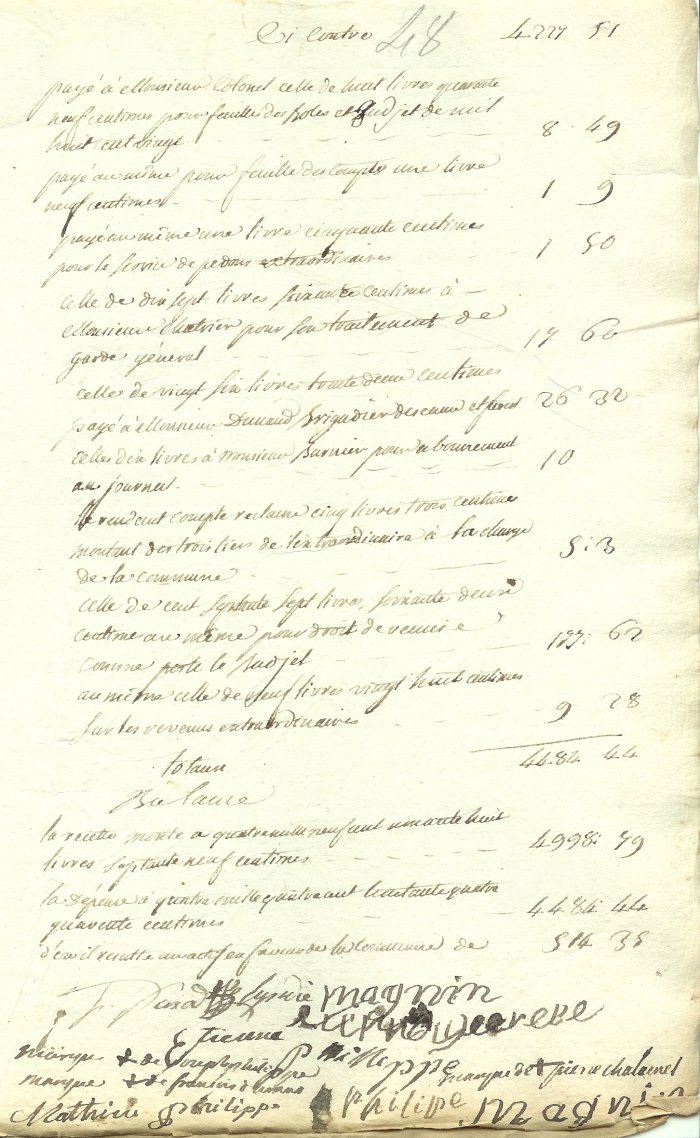 Ci contre 48 4227 51
payé à Monsieur Colonel celle de huit livres quarante
neuf centimes pour feuille des Roles et Budjet de mil
huit cent vingt 8 . 49
payé au même pour feuille des compte une livre
neuf centimes 1 9
payé au même une livre cinquante centimes
pour le service de pedons extraordinaires 1 50
celle de dix sept livres soixante centimes à
Monsieur Chatrier pour son traitement de
garde général 17 60
celles de vingt six livres trente deux centimes
payé à Monsieur Dunand Brigadier des eaux et forets 26 32
celles dix livres à Monsieur Burnier pour abonnement
au journal 10
le rendant compte reclame cinq livres trois centime
montant des trois tiers de l'extraordinaire à la charge
de la commune 5 : 3
celle de cent septante sept livres, soixante deux
centime au même pour droit de remise
comme porte le Budjet 177 : 62
au même celle de neuf livres vingt huit centimes
sur les revenus extraordinaires 9 28
totaux 4484 44
Balance
la recette monte a quatre mille neuf cent nonante huit
livres septante neuf centimes 4998 : 79
la depense a quatre mille quatre cent huitante quatre
quarante centimes 4484 44
d'ou il resulte un actif en faveur de la Commune de 514 35
Syndic magnin
Etienne
marque + de joseph philippe philippe marque de + pierre chalamel
marque + de francois
Mathieu philippe philippe magnin